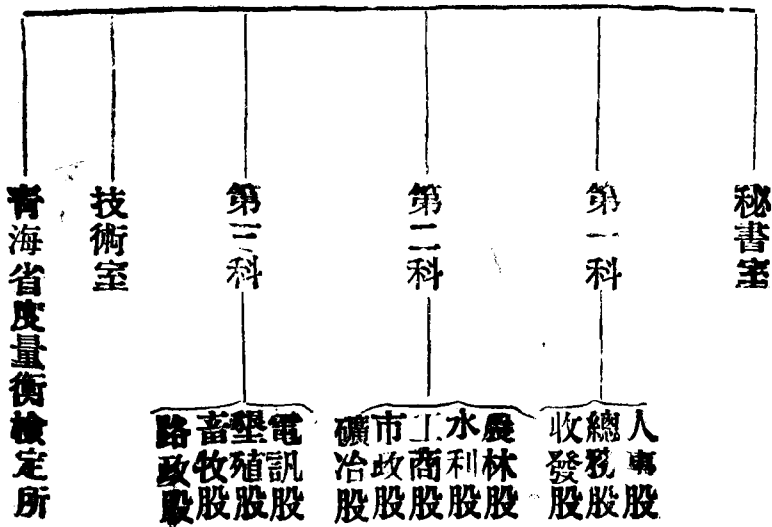 秘書室
第一科
人事股
總務股
收發股
第二科
農林股
水利股
工商股
市政股
礦冶股
第三科
電訊股
墾殖股
畜牧股
路政股
技術室
青海省度量衡檢定所